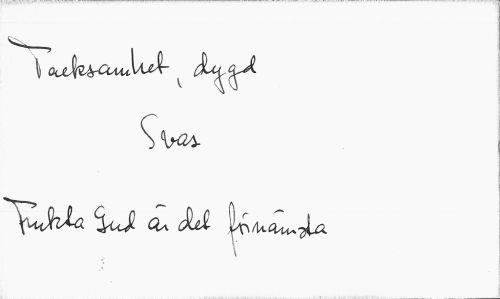 Tacksamhet, dygd
Svas
Frukta Gud är det förnämsta